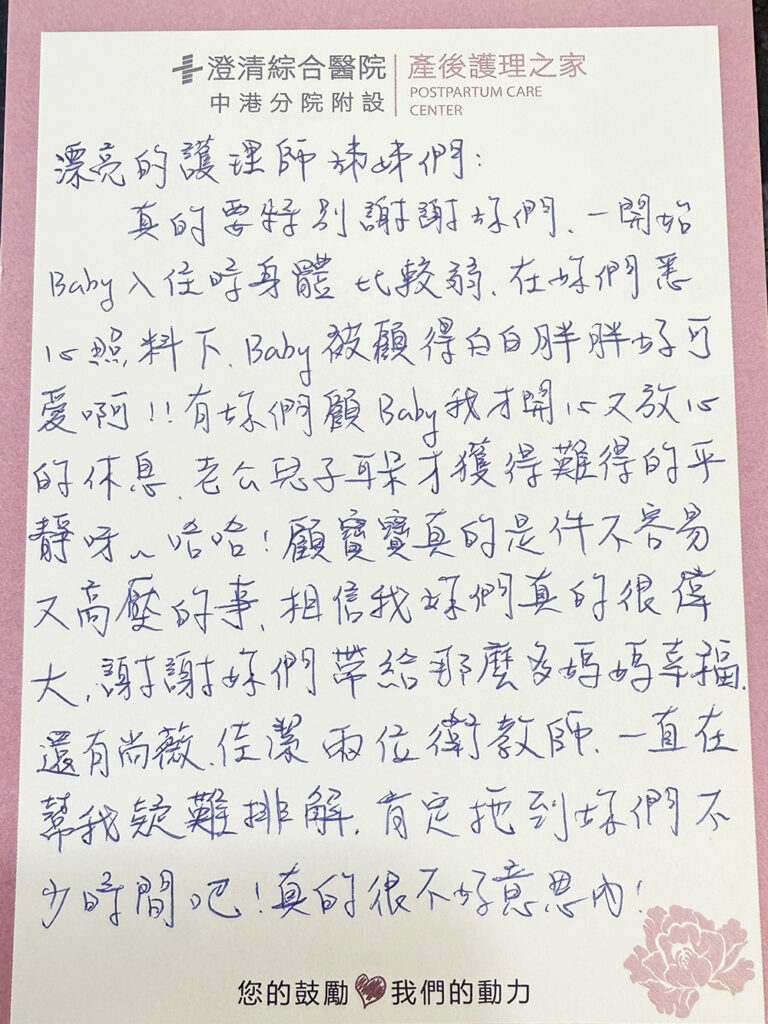 澄清綜合醫院
中港分院附設
產後護理之家
POSTPARTUM CARE
CENTER
漂亮的護理師姊妹們：
真的要特別謝謝妳們、一開始
Baby入住時身體比較弱、在妳們悉
心照料下、Baby被顧得白白胖胖好可
愛啊!!有妳們顧Baby我才開心又放心
的休息、老公兒子耳朵才獲得難得的平
靜呀~哈哈!顧寶寶真的是件不容易
又高壓的事、相信我妳們真的很偉
大、謝謝妳們帶給那麼多媽媽幸福、
還有尚薇、佳潔兩位衛教師、一直在
幫我疑難排解、肯定拖到妳們不
少時間吧!真的很不好意思內!
您的鼓勵 我們的動力